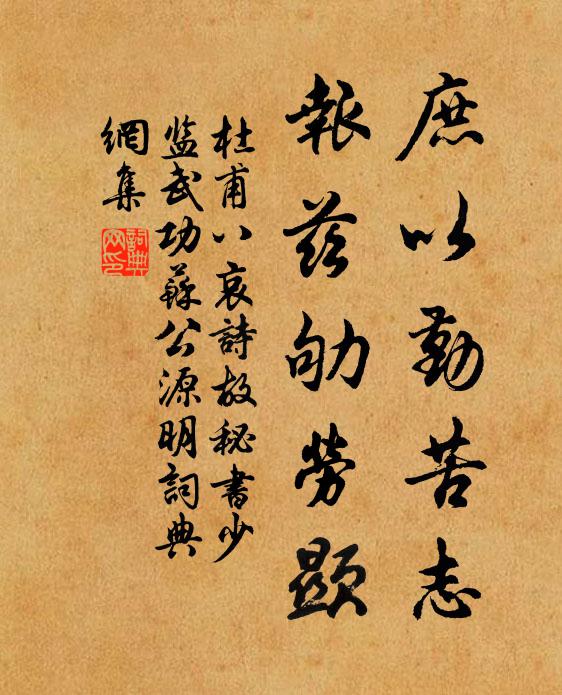 庶以勤苦志
報茲劬勞顯
杜甫八哀詩故秘書少
监武功蘇公源明詞典
網集
詞典
网印